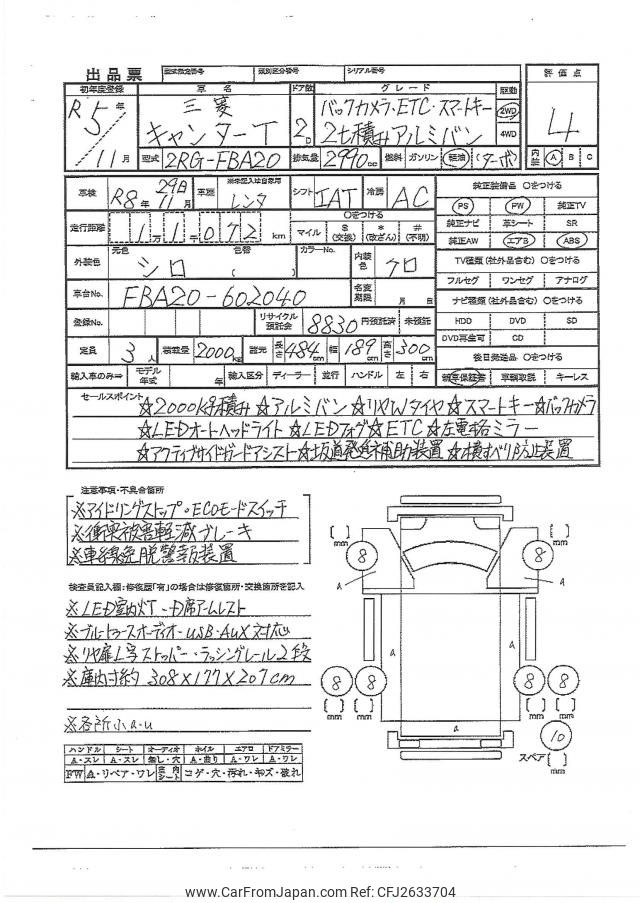 出品票 型式指定番号 類別区分番号 シリアル番号 評価点
初年度登録 車名 ドア数 グレード 駆動
R5年 三菱 2D バックカメラ・ETC・スマートキー 2WD 4
11月 キャンターT 2t積みアルミバン 4WD
型式 2RG-FBA20 排気量 2990cc 燃料 ガソリン 軽油 (ターボ) 内装 A B C
車検 R8年29日11月 車歴 ※未記入は自家用 レンタ シフト IAT 冷房 AC 純正装備品 〇をつける
PS PW 純正TV
走行距離 11万1072km 〇をつける マイル $(交換) *(改ざん) #(不明) 純正ナビ 革シート SR
純正AW エアB ABS
外装色 元色 シロ 色替 ( ) カラーNo. 内装色 クロ TV種類(社外品含む) 〇をつける
フルセグ ワンセグ アナログ
車台No. FBA20-602040 名変期限 月 日 ナビ種類(社外品含む) 〇をつける
登録No. リサイクル預託金 8830円預託済 未預託 HDD DVD SD
DVD再生可 CD
定員 3人 積載量 2000kg 諸元 長さ 484cm 幅 189cm 高さ 300cm 後日発送品 〇をつける
輸入車のみ⇒ モデル年式 年 輸入区分 ディーラー 並行 ハンドル 左 右 新車保証書 車輌取説 キーレス
セールスポイント ☆2000kg積み☆アルミバン☆リヤWタイヤ☆スマートキー☆バックカメラ
☆LEDオートヘッドライト☆LEDフォグ☆ETC☆左電格ミラー
☆アクティブサイドガードアシスト☆坂道発進補助装置☆横すべり防止装置
注意事項・不具合箇所
※アイドリングストップ・ECOモードスイッチ
※衝突被害軽減ブレーキ
※車線逸脱警報装置
検査員記入欄:修復歴「有」の場合は修復箇所・交換箇所を記入
※LED室内灯・D席アームレスト
※ブルートゥースオーディオ・USB・AUX対応
※リヤ扉L字ストッパー・ラッシングレール2段
※庫内寸約 308×177×207cm
※各所小a.u
ハンドル シート オーディオ ホイル エアロ ドアミラー
A・スレ A・スレ 無し・穴 A・曲り A・ワレ A・ワレ
FW A・リペア・ワレ 室内シート コゲ・穴・汚れ・キズ・破れ
[ ] mm 8 8 [ ] mm
A A
A A
8 8 8 8
[ ] mm [ ] mm [ ] mm [ ] mm
a
10
スペア [ ] mm
www.CarFromJapan.com Ref: CFJ2633704